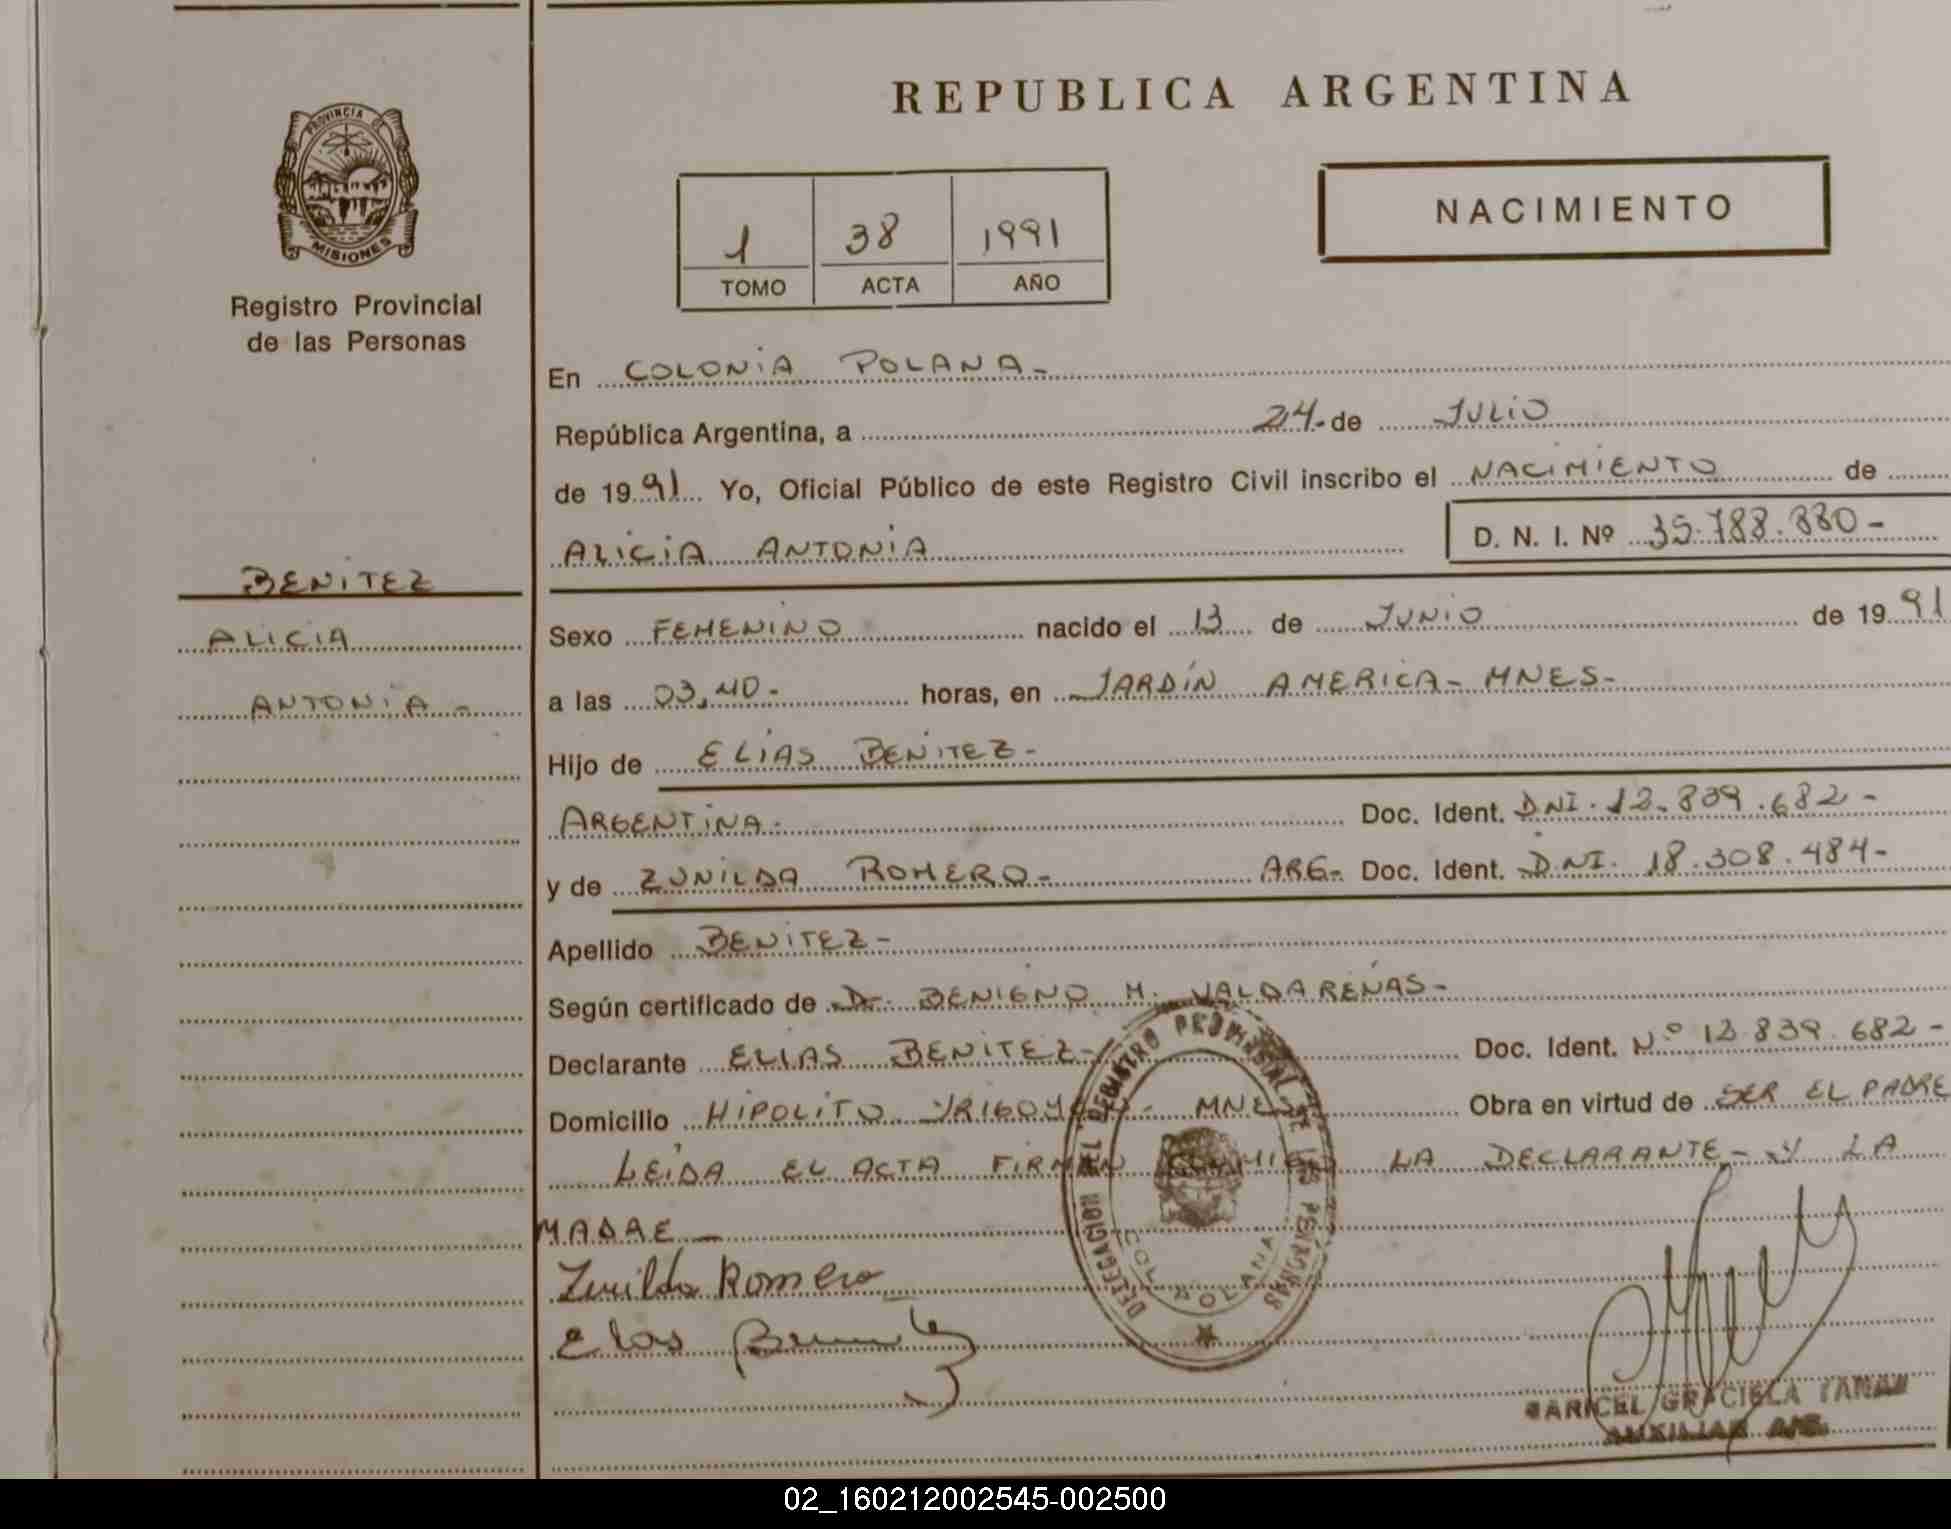 REPUBLICA ARGENTINA
PROVINCIA DE
MISIONES
Registro Provincial
de las Personas
1 38 1991
TOMO ACTA AÑO
NACIMIENTO
En COLONIA POLANA-
República Argentina, a 24- de JULIO
de 1991 Yo, Oficial Público de este Registro Civil inscribo el NACIMIENTO de
ALICIA ANTONIA
D. N. I. Nº 35.788.880-
BENITEZ
ALICIA
ANTONIA-
Sexo FEMENINO nacido el 13 de JUNIO de 1991
a las 03,40- horas, en JARDÍN AMERICA- MNES-
Hijo de ELIAS BENITEZ-
ARGENTINA- Doc. Ident. DNI. 12.839.682-
y de ZUNILDA ROMERO- ARG- Doc. Ident. DNI. 18.308.484-
Apellido BENITEZ-
Según certificado de D. BENIGNO M. VALDARENAS-
Declarante ELIAS BENITEZ- Doc. Ident. Nº 12.839.682-
Domicilio HIPOLITO YRIGOYEN- MNES Obra en virtud de SER EL PADRE
LEIDA EL ACTA FIRMAN CONMIGO LA DECLARANTE- Y LA
MADRE-
Zunilda Romero
Elias Benitez
DELEGACION DEL REGISTRO PROVINCIAL DE LAS PERSONAS
COL. POLANA
GRACIELA
AUXILIAR
02_160212002545-002500